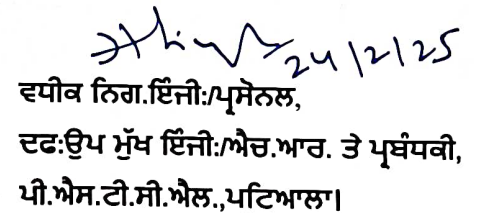 24/2/25
ਵਧੀਕ ਨਿਗ.ਇੰਜੀ:/ਪ੍ਰਸੋਨਲ,
ਦਫ:ਉਪ ਮੁੱਖ ਇੰਜੀ:/ਐਚ.ਆਰ. ਤੇ ਪ੍ਰਬੰਧਕੀ,
ਪੀ.ਐਸ.ਟੀ.ਸੀ.ਐਲ.,ਪਟਿਆਲਾ।